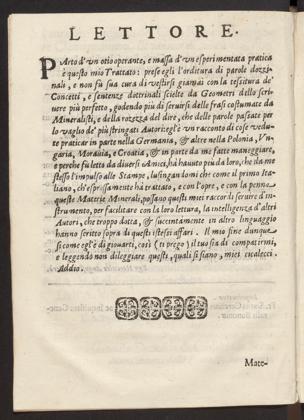 LETTORE.
PArto d'vn otio operante, e massa d'vn esperimentata pratica
è questo mio Trattato: prese egli l'orditura di parole dozzi-
nali, e non fù sua cura di vestirsi giamai con la tessitura de'
Concetti, e sentenze dottrinali scielte da Geometri dello scri-
uere più perfetto, godendo più di seruirsi delle frasi costumate da
Mineralisti, e della rozezza del dire, che delle parole passate per
lo vaglio de' più stringati Autori: egl'è vn racconto di cose vedu-
te praticar in parte nella Germania, & altre nella Polonia, Vn-
garia, Morauia, e Croatia, & in parte da me fatte maneggiare,
e perche fù letto da diuersi amici, hà hauuto più da loro, che da me
stesso l'impulso alle Stampe, lusingandomi che come il primo Ita-
liano, ch'espressamente hà trattato, e con l'opre, e con la penna
queste Materie Minerali, possano questi miei raccordi seruire d'in-
strumento, per facilitare con la loro lettura, la intelligenza d'altri
Autori, che troppo dotta, & succintamente in altro linguaggio
hanno scritto sopra di questi istessi affari. Il mio fine dunque
si come egl'è di giouarti, così (ti prego) il tuo sia di compatirmi,
e leggendo non dileggiare questi, quali si siano, miei cicalecci.
Addio.
Mate-